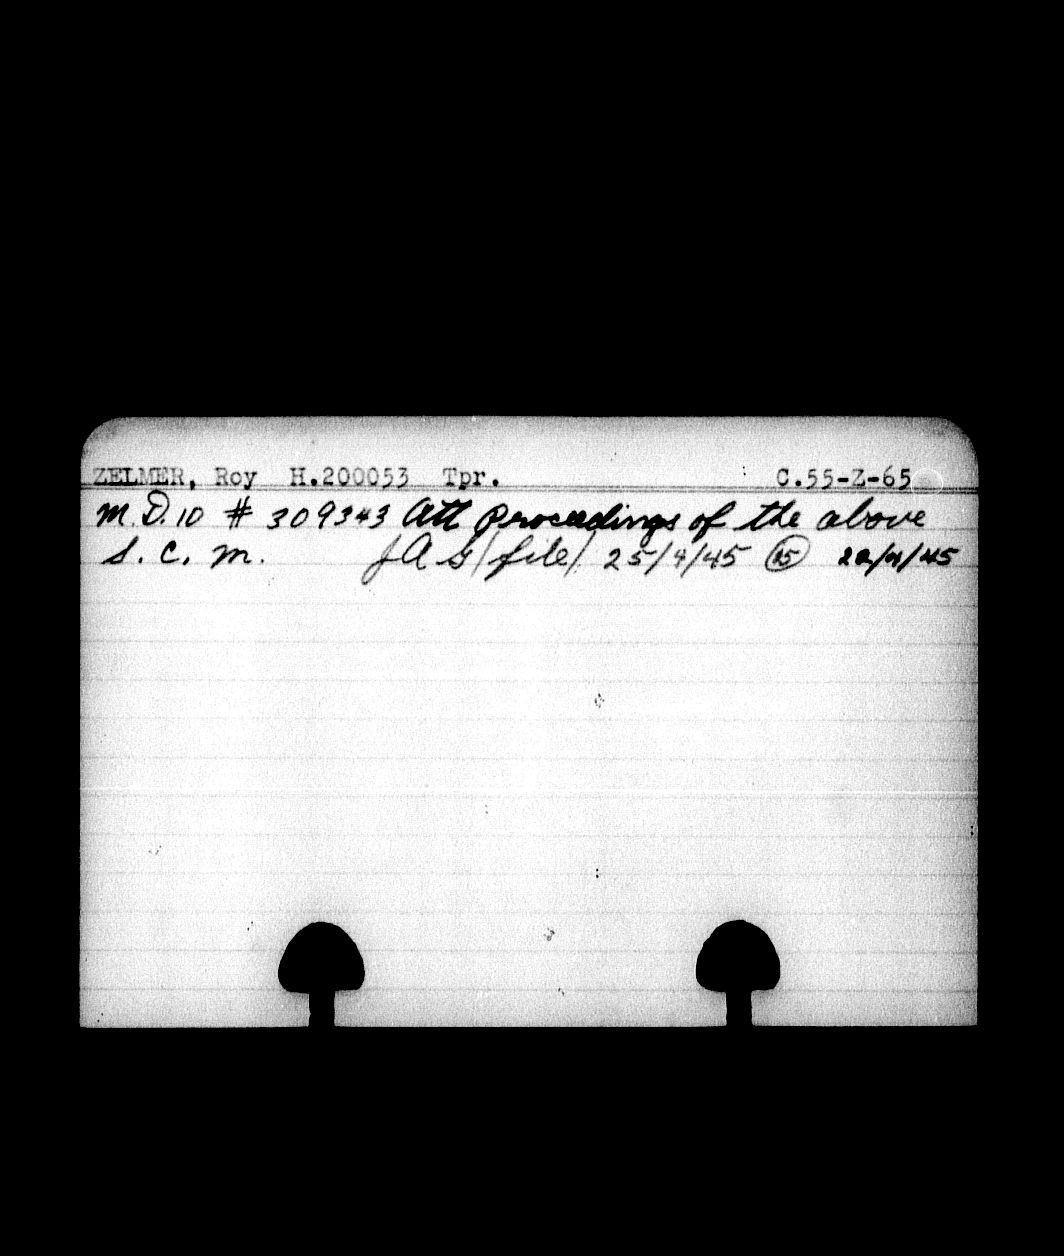 ZELMER, Roy H.200053 Tpr. C.55-Z-65
M.D.10 # 309343 Att Proceedings of the above
S. C. M. JAG/file/ 25/4/45 25 22/4/45